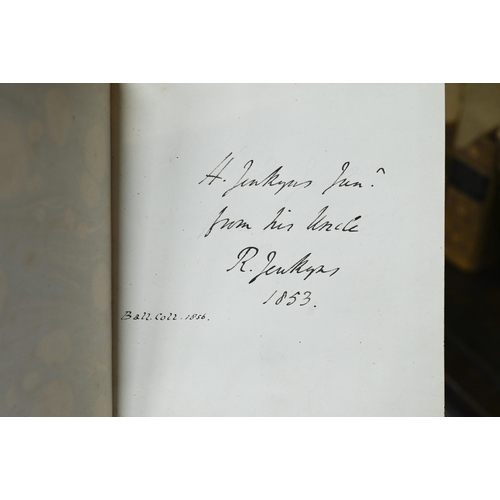 H. Jenkyns Junr.
from his Uncle
R. Jenkyns
1853.
Ball. Coll. 1856.